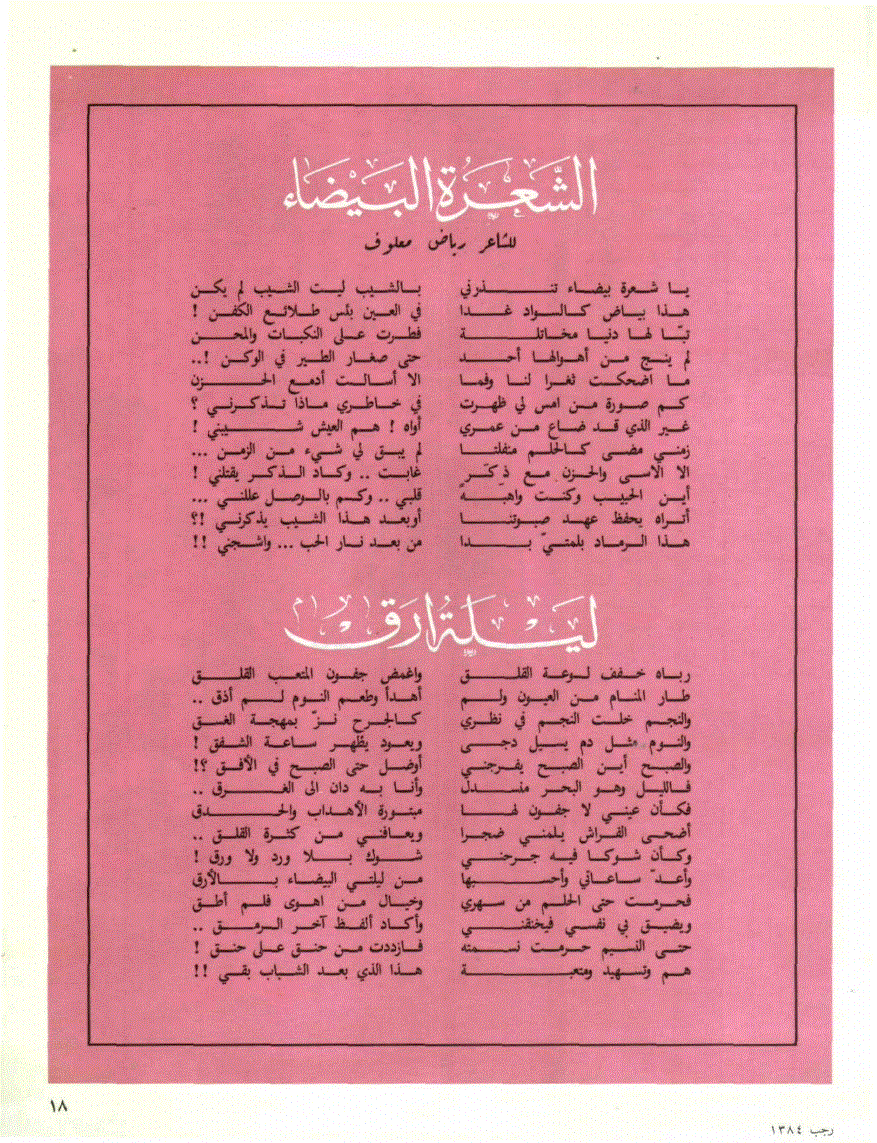 الشَّعرَة البَيْضاء
للشاعر رياض معلوف
يا شعرة بيضاء تنذرني بالشيب ليت الشيب لم يكن
هذا بياض كالسواد غدا في العين بئس طلائع الكفن !
تبّا لها دنيا مخاتلة فطرت على النكبات والمحن
لم ينج من أهوالها أحد حتى صغار الطير في الوكن !..
ما اضحكت ثغرا لنا وفما الا أسالت أدمع الحزن
كم صورة من امس لي ظهرت في خاطري ماذا تذكرني ؟
غير الذي قد ضاع من عمري أواه ! هم العيش شيبني !
زمني مضى كالحلم منفلتا لم يبق لي شيء من الزمن ...
الا الاسى والحزن مع ذكَر غابت .. وكاد الذكر يقتلني !
أين الحبيب وكنت واهبه قلبي .. وكم بالوصل عللني ...
أتراه يحفظ عهد صبوتنا أوبعد هذا الشيب يذكرني !؟
هذا الرماد بلمتيّ بدا من بعد نار الحب ... واشجني !!
ليْلة ارَق
رباه خفف لوعة القلق واغمض جفون المتعب القلق
طار المنام من العيون ولم أهدأ وطعم النوم لم أذق ..
والنجم خلت النجم في نظري كالجرح نزّ بمهجة الغسق
والنوم مثل دم يسيل دجى ويعود يظهر ساعة الشفق !
والصبح أين الصبح يفرجني أوضل حتى الصبح في الأفق ؟!
فالليل وهو البحر منسدل وأنا به دان الى الغرق ..
فكأن عيني لا جفون لها مبتورة الأهداب والحدق
أضحى الفراش يلمني ضجرا ويعافني من كثرة القلق ..
وكأن شوكا فيه جرحني شوك بلا ورد ولا ورق !
وأعدّ ساعاتي وأحسبها من ليلتي البيضاء بالأرق
فحرمت حتى الحلم من سهري وخيال من اهوى فلم أطق
ويضيق بي نفسي فيخنقني وأكاد ألفظ آخر الرمق ..
حتى النسيم حرمت نسمته فازددت من حنق على حنق !
هم وتسهيد ومتعبة هذا الذي بعد الشباب بقي !!
١٨
رجب ١٣٨٤